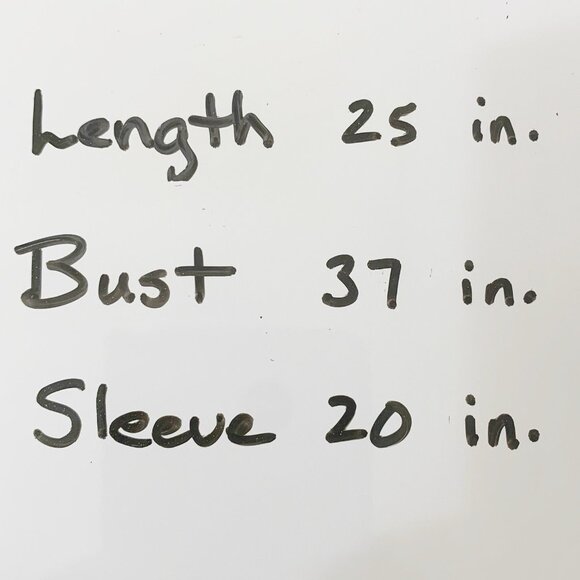 Length 25 in.
Bust 37 in.
Sleeve 20 in.